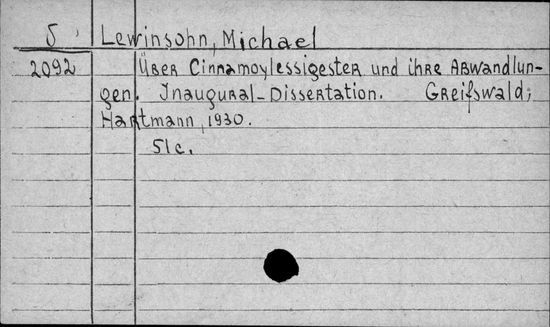 5 Lewinsohn, Michael
2092 Über Cinnamoylessigester und ihre Abwandlun-
gen. Inaugural-Dissertation. Greifswald;
Hartmann, 1930.
51c.